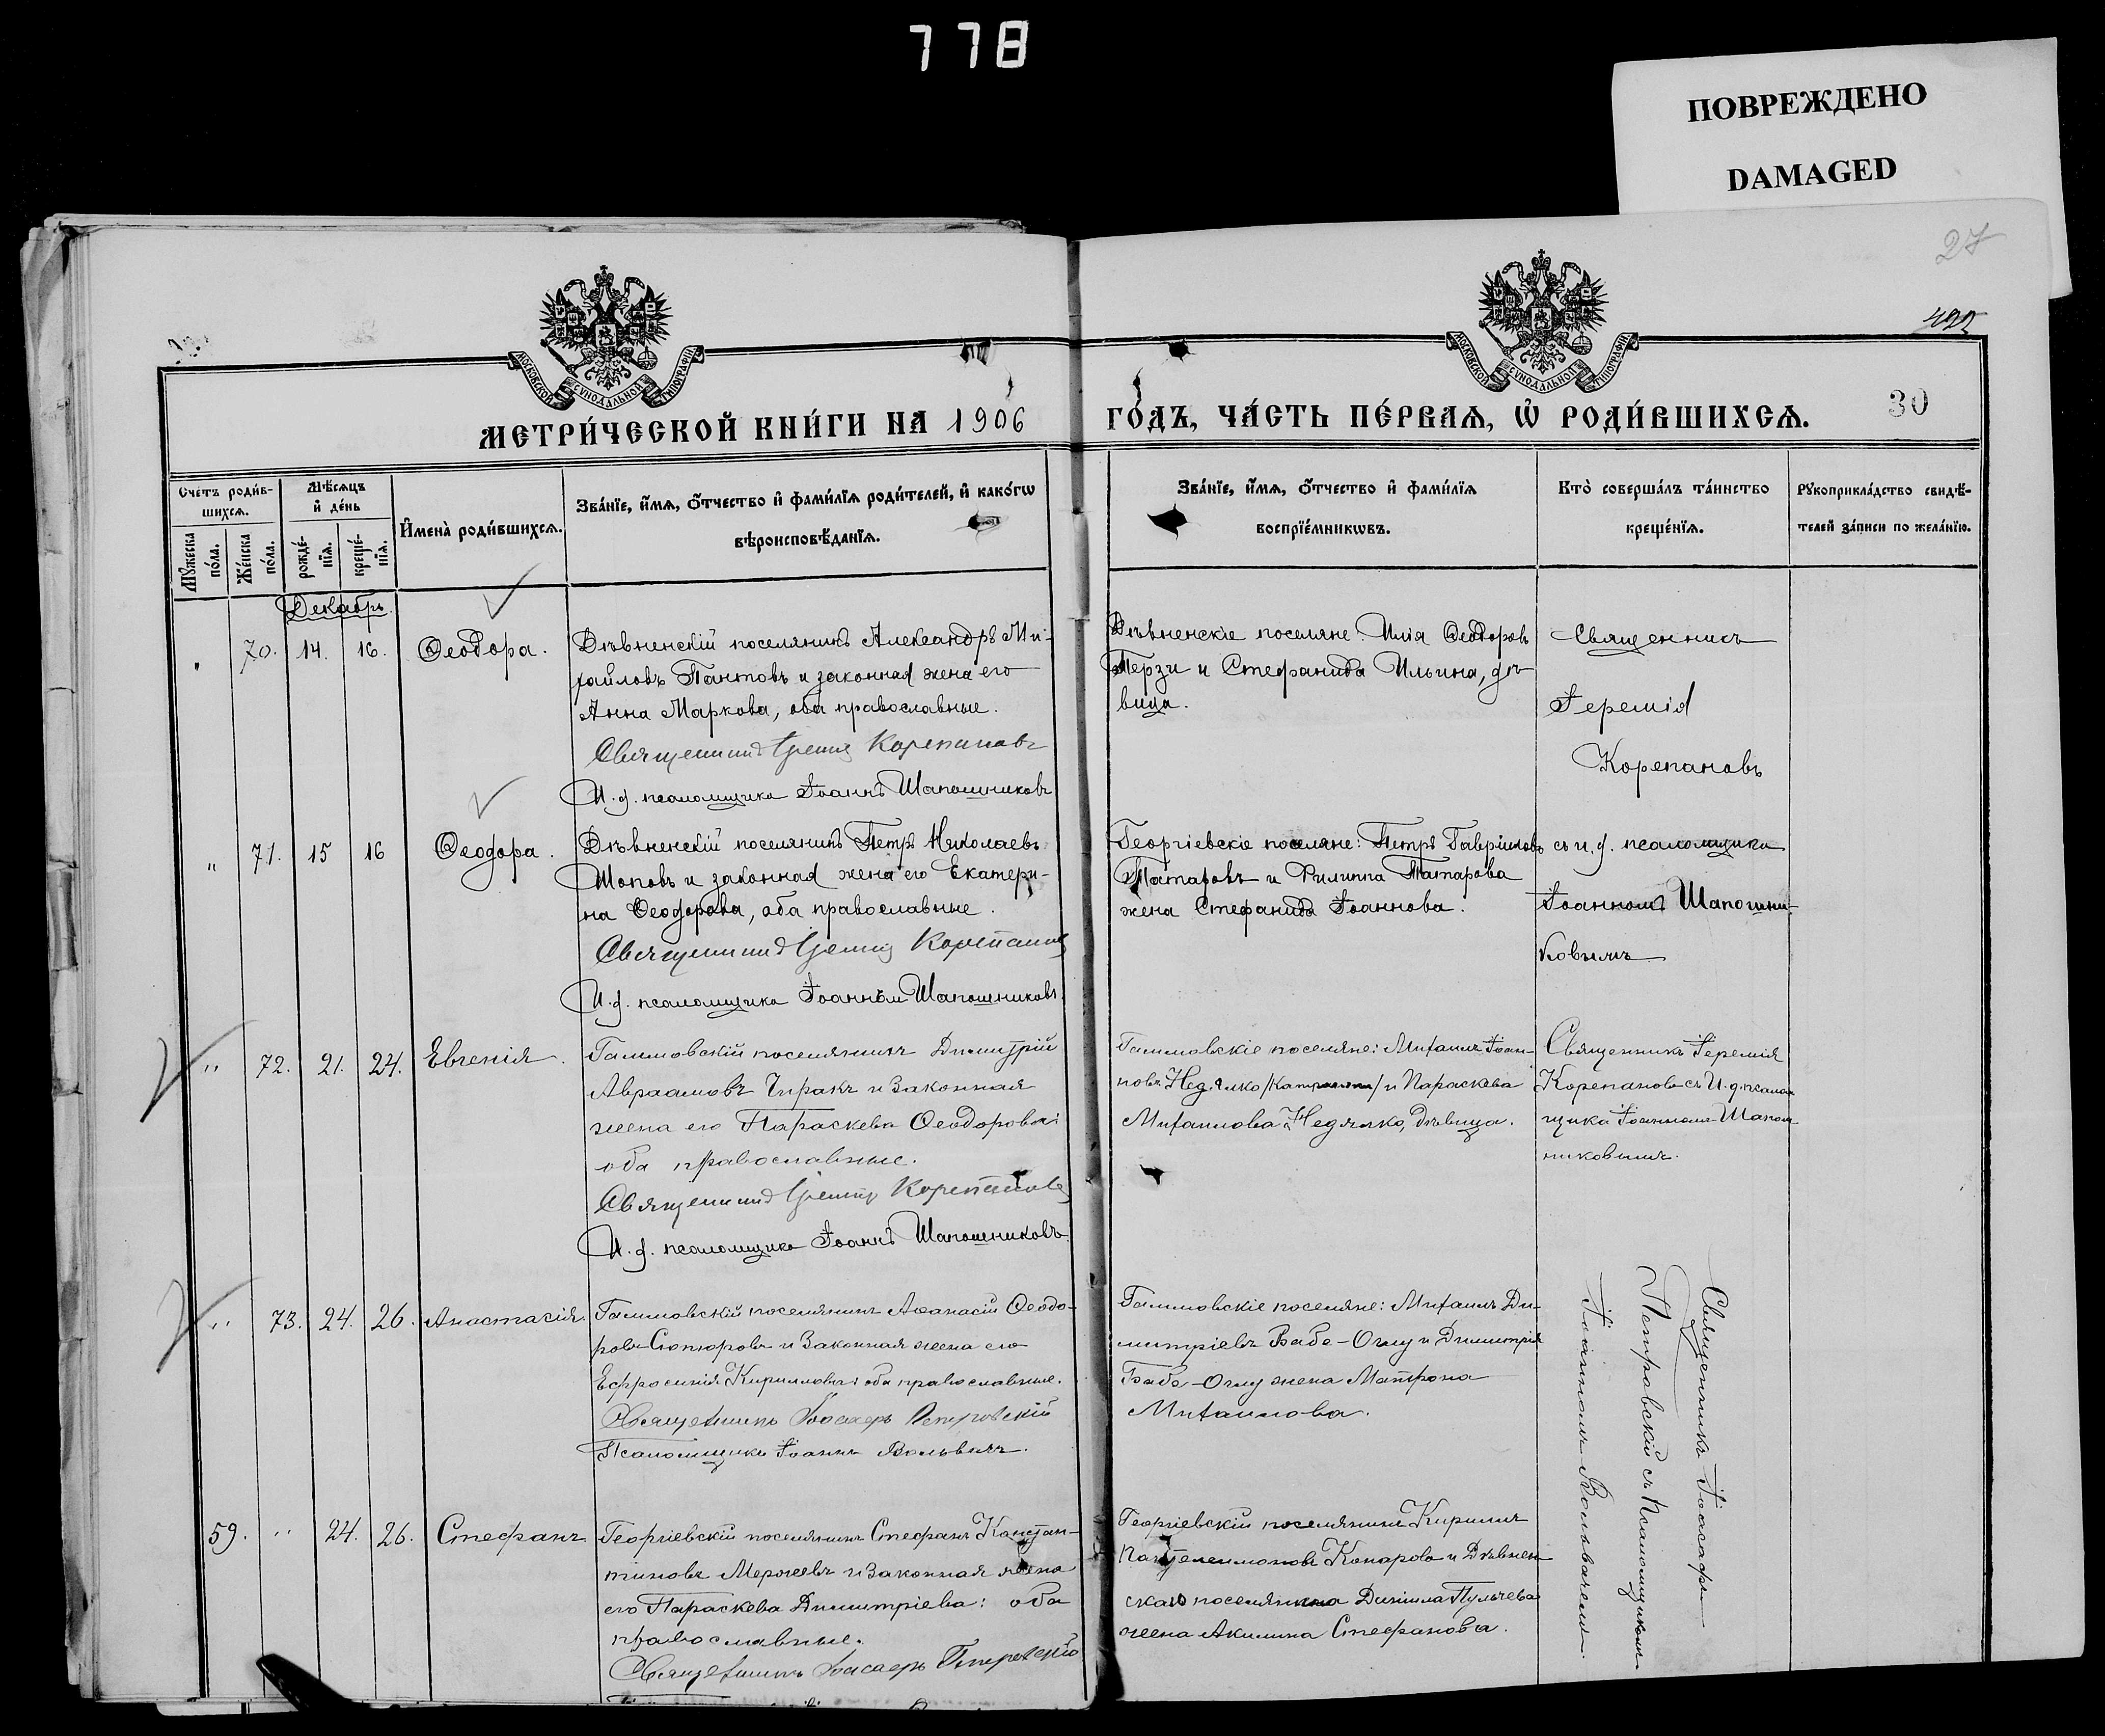 778
ПОВРЕЖДЕНО
DAMAGED
27
МОСКОВСКОЙ СѴНОДАЛЬНОЙ ТИПОГРАФІИ
МОСКОВСКОЙ СѴНОДАЛЬНОЙ ТИПОГРАФІИ
30
МЕТРИ́ЧЕСКОЙ КНИ́ГИ НА 1906 ГО́ДЪ, ЧА́СТЬ ПЕ́РВАѦ, Ѡ҆ РОДИ́ВШИХСѦ.
Сче́тъ роди́в-
шихсѧ.
Мꙋжеска
по́ла.
Же́нска
по́ла.
Мѣ́сѧцъ
и҆ де́нь
рожде́-
нїѧ.
креще́-
нїѧ.
И҆мена̀ роди́вшихсѧ.
Зва́нїе, и҆́мѧ, ѻ҆́тчество и҆ фами́лїѧ роди́телей, и҆ како́гѡ
вѣроисповѣ́данїѧ.
Зва́нїе, и҆́мѧ, ѻ҆́тчество и҆ фами́лїѧ
воспрїе́мникѡвъ.
Кто̀ соверша́лъ та́инство
креще́нїѧ.
Рꙋкоприкла́дство свидѣ́-
телей за́писи по жела́нїю.
Декабрь.
" 70. 14. 16. Ѳеодора.
Дѣвненскій поселянинъ Александръ Ми-
хайловъ Пантовъ и законная жена его
Анна Маркова, оба православные.
Священникъ Іеремія Корепановъ
И. д. псаломщика Іоаннъ Шапошниковъ
Дѣвненскіе поселяне: Илія Ѳеодоровъ
Терзи и Стефанида Ильина, дѣ-
вица.
Священникъ
Іеремія
Корепановъ
" 71. 15 16 Ѳеодора.
Дѣвненскій поселянинъ Петръ Николаевъ
Поповъ и законная жена его Екатери-
на Ѳеодорова, оба православные.
Священникъ Іеремія Корепановъ
И. д. псаломщика Іоаннъ Шапошниковъ.
Георгіевскіе поселяне: Петръ Гавріиловъ
Татаровъ и Филиппа Татарова
жена Стефанида Іоаннова.
съ и. д. псаломщика
Іоанномъ Шапошни-
ковымъ
" 72. 21. 24. Евгенія.
Галиловскій поселянинъ Димитрій
Авраамовъ Чиракъ и законная
жена его Параскева Ѳеодорова:
оба православные.
Священникъ Іеремія Корепановъ
И. д. псаломщика Іоаннъ Шапошниковъ.
поселяне: Михаилъ Іоан-
новъ Недялко и Параскева
Михаилова Недялко, дѣвица.
Священникъ Іеремія
Корепановъ съ И. д. псалом-
щика Іоанномъ Шапош-
никовымъ.
" 73. 24. 26. Анастасія.
поселянинъ Аѳанасій Ѳеодо-
ровъ и законная жена его
Ефросинія Кириллова: оба православные.
Священникъ Іоасафъ Петровскій
Псаломщикъ Іоаннъ
поселяне: Михаилъ Ди-
митріевъ Баба-Оглу и Димитрія
Баба-Оглу жена Матрона
Михаилова.
Священникъ Іоасафъ
Петровскій съ Псаломщикомъ
Іоанномъ
59. " 24. 26. Стефанъ.
Георгіевскій поселянинъ Стефанъ Констан-
тиновъ и законная жена
его Параскева Димитріева: оба
православные.
Священникъ Іоасафъ Петровскій
Георгіевскій поселянинъ Кириллъ
Пантелеимоновъ Конаровъ и Дѣвнен-
скаго поселянина
жена Акилина Стефанова.